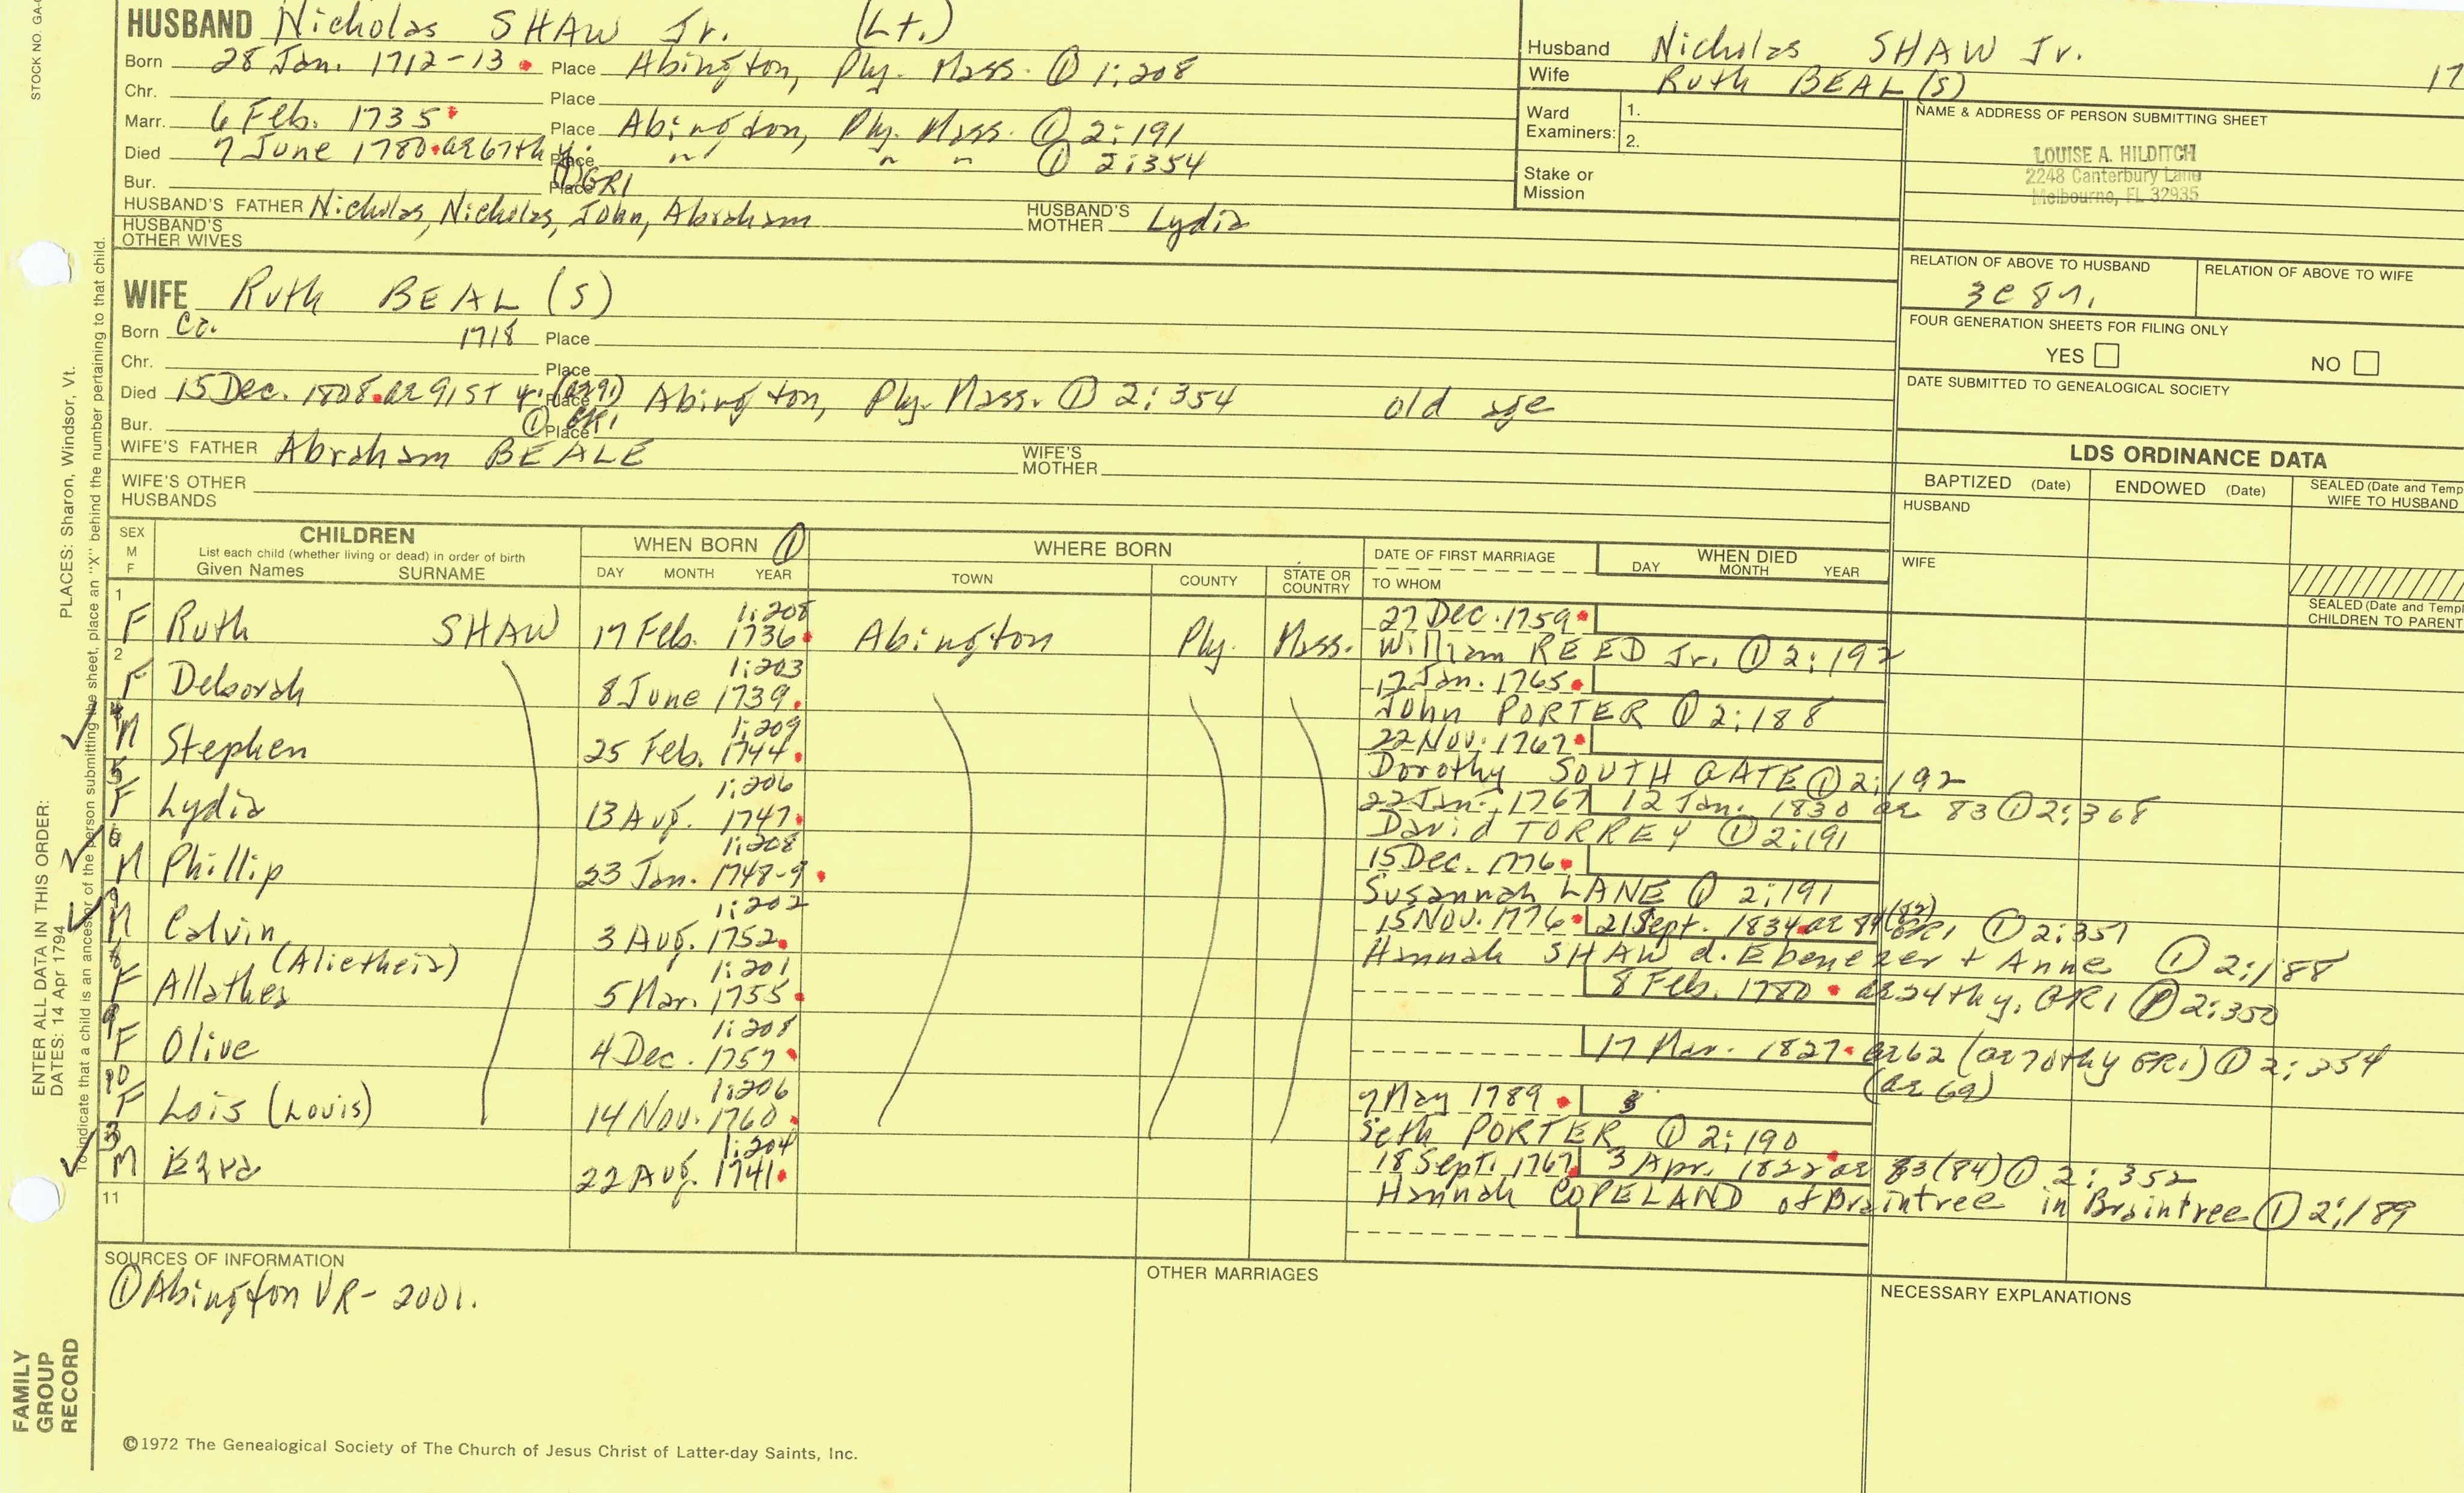 HUSBAND Nicholas SHAW Jr. (Lt.)
Born 28 Jan. 1712-13 Place Abington, Ply. Mass. ① 1:208
Chr. Place
Marr. 6 Feb. 1735 Place Abington, Ply. Mass. ① 2:191
Died 7 June 1780 ae 67th y. Place " " " ① 2:354
Bur. Place ① GR1
HUSBAND'S FATHER Nicholas, Nicholas, John, Abraham HUSBAND'S MOTHER Lydia
HUSBAND'S OTHER WIVES
Husband Nicholas SHAW Jr.
Wife Ruth BEAL(S) 17
Ward Examiners: 1.
2.
Stake or Mission
NAME & ADDRESS OF PERSON SUBMITTING SHEET
LOUISE A. HILDITCH
2248 Canterbury Lane
Melbourne, FL 32935
RELATION OF ABOVE TO HUSBAND RELATION OF ABOVE TO WIFE
3c 8r.
FOUR GENERATION SHEETS FOR FILING ONLY
YES NO
DATE SUBMITTED TO GENEALOGICAL SOCIETY
WIFE Ruth BEAL (S)
Born Ca. 1718 Place
Chr. Place
Died 15 Dec. 1808 ae 91st y. (ae 91) Place Abington, Ply. Mass. ① 2:354 old age
Bur. Place ① GR1
WIFE'S FATHER Abraham BEALE WIFE'S MOTHER
WIFE'S OTHER HUSBANDS
LDS ORDINANCE DATA
BAPTIZED (Date) ENDOWED (Date) SEALED (Date and Temp
WIFE TO HUSBAND
HUSBAND
WIFE
SEALED (Date and Templ
CHILDREN TO PARENT
SEX M F CHILDREN
List each child (whether living or dead) in order of birth
Given Names SURNAME
WHEN BORN ①
DAY MONTH YEAR
WHERE BORN
TOWN COUNTY STATE OR COUNTRY
DATE OF FIRST MARRIAGE
TO WHOM
WHEN DIED
DAY MONTH YEAR
1 1:208 27 Dec. 1759
F Ruth SHAW 17 Feb. 1736 Abington Ply. Mass. William REED Jr. ① 2:192
2 1:203 17 Jan. 1765
F Deborah 8 June 1739 John PORTER ① 2:188
4 1:209 22 Nov. 1767
M Stephen 25 Feb. 1744 Dorothy SOUTHGATE ① 2:192
5 1:206 22 Jan. 1767 12 Jan. 1830 ae 83 ① 2:368
F Lydia 13 Aug. 1747 David TORREY ① 2:191
6 1:208 15 Dec. 1776
M Phillip 23 Jan. 1748-9 Susannah LANE ① 2:191
1:202 15 Nov. 1776 21 Sept. 1834 ae 84 (82) GR1 ① 2:351
M Calvin 3 Aug. 1752 Hannah SHAW d. Ebenezer + Anne ① 2:188
8 (Alietheia) 1:201 8 Feb. 1780 ae 24th y. GR1 ① 2:350
F Allathea 5 Mar. 1755
9 1:208 17 Mar. 1827 ae 62 (ae 70th y GR1) ① 2:354
F Olive 4 Dec. 1757 (ae 69)
10 1:206 7 May 1789
F Lois (Louis) 14 Nov. 1760 Seth PORTER ① 2:190
3 1:204 18 Sept. 1767 3 Apr. 1822 ae 83 (84) ① 2:352
M Ezra 22 Aug. 1741 Hannah COPELAND of Braintree in Braintree ① 2:189
11
SOURCES OF INFORMATION
① Abington VR - 2001.
OTHER MARRIAGES
NECESSARY EXPLANATIONS
©1972 The Genealogical Society of The Church of Jesus Christ of Latter-day Saints, Inc.
STOCK NO. GA-
PLACES: Sharon, Windsor, Vt.
To indicate that a child is an ancestor of the person submitting the sheet, place an "X" behind the number pertaining to that child.
ENTER ALL DATA IN THIS ORDER:
DATES: 14 Apr 1794
FAMILY
GROUP
RECORD